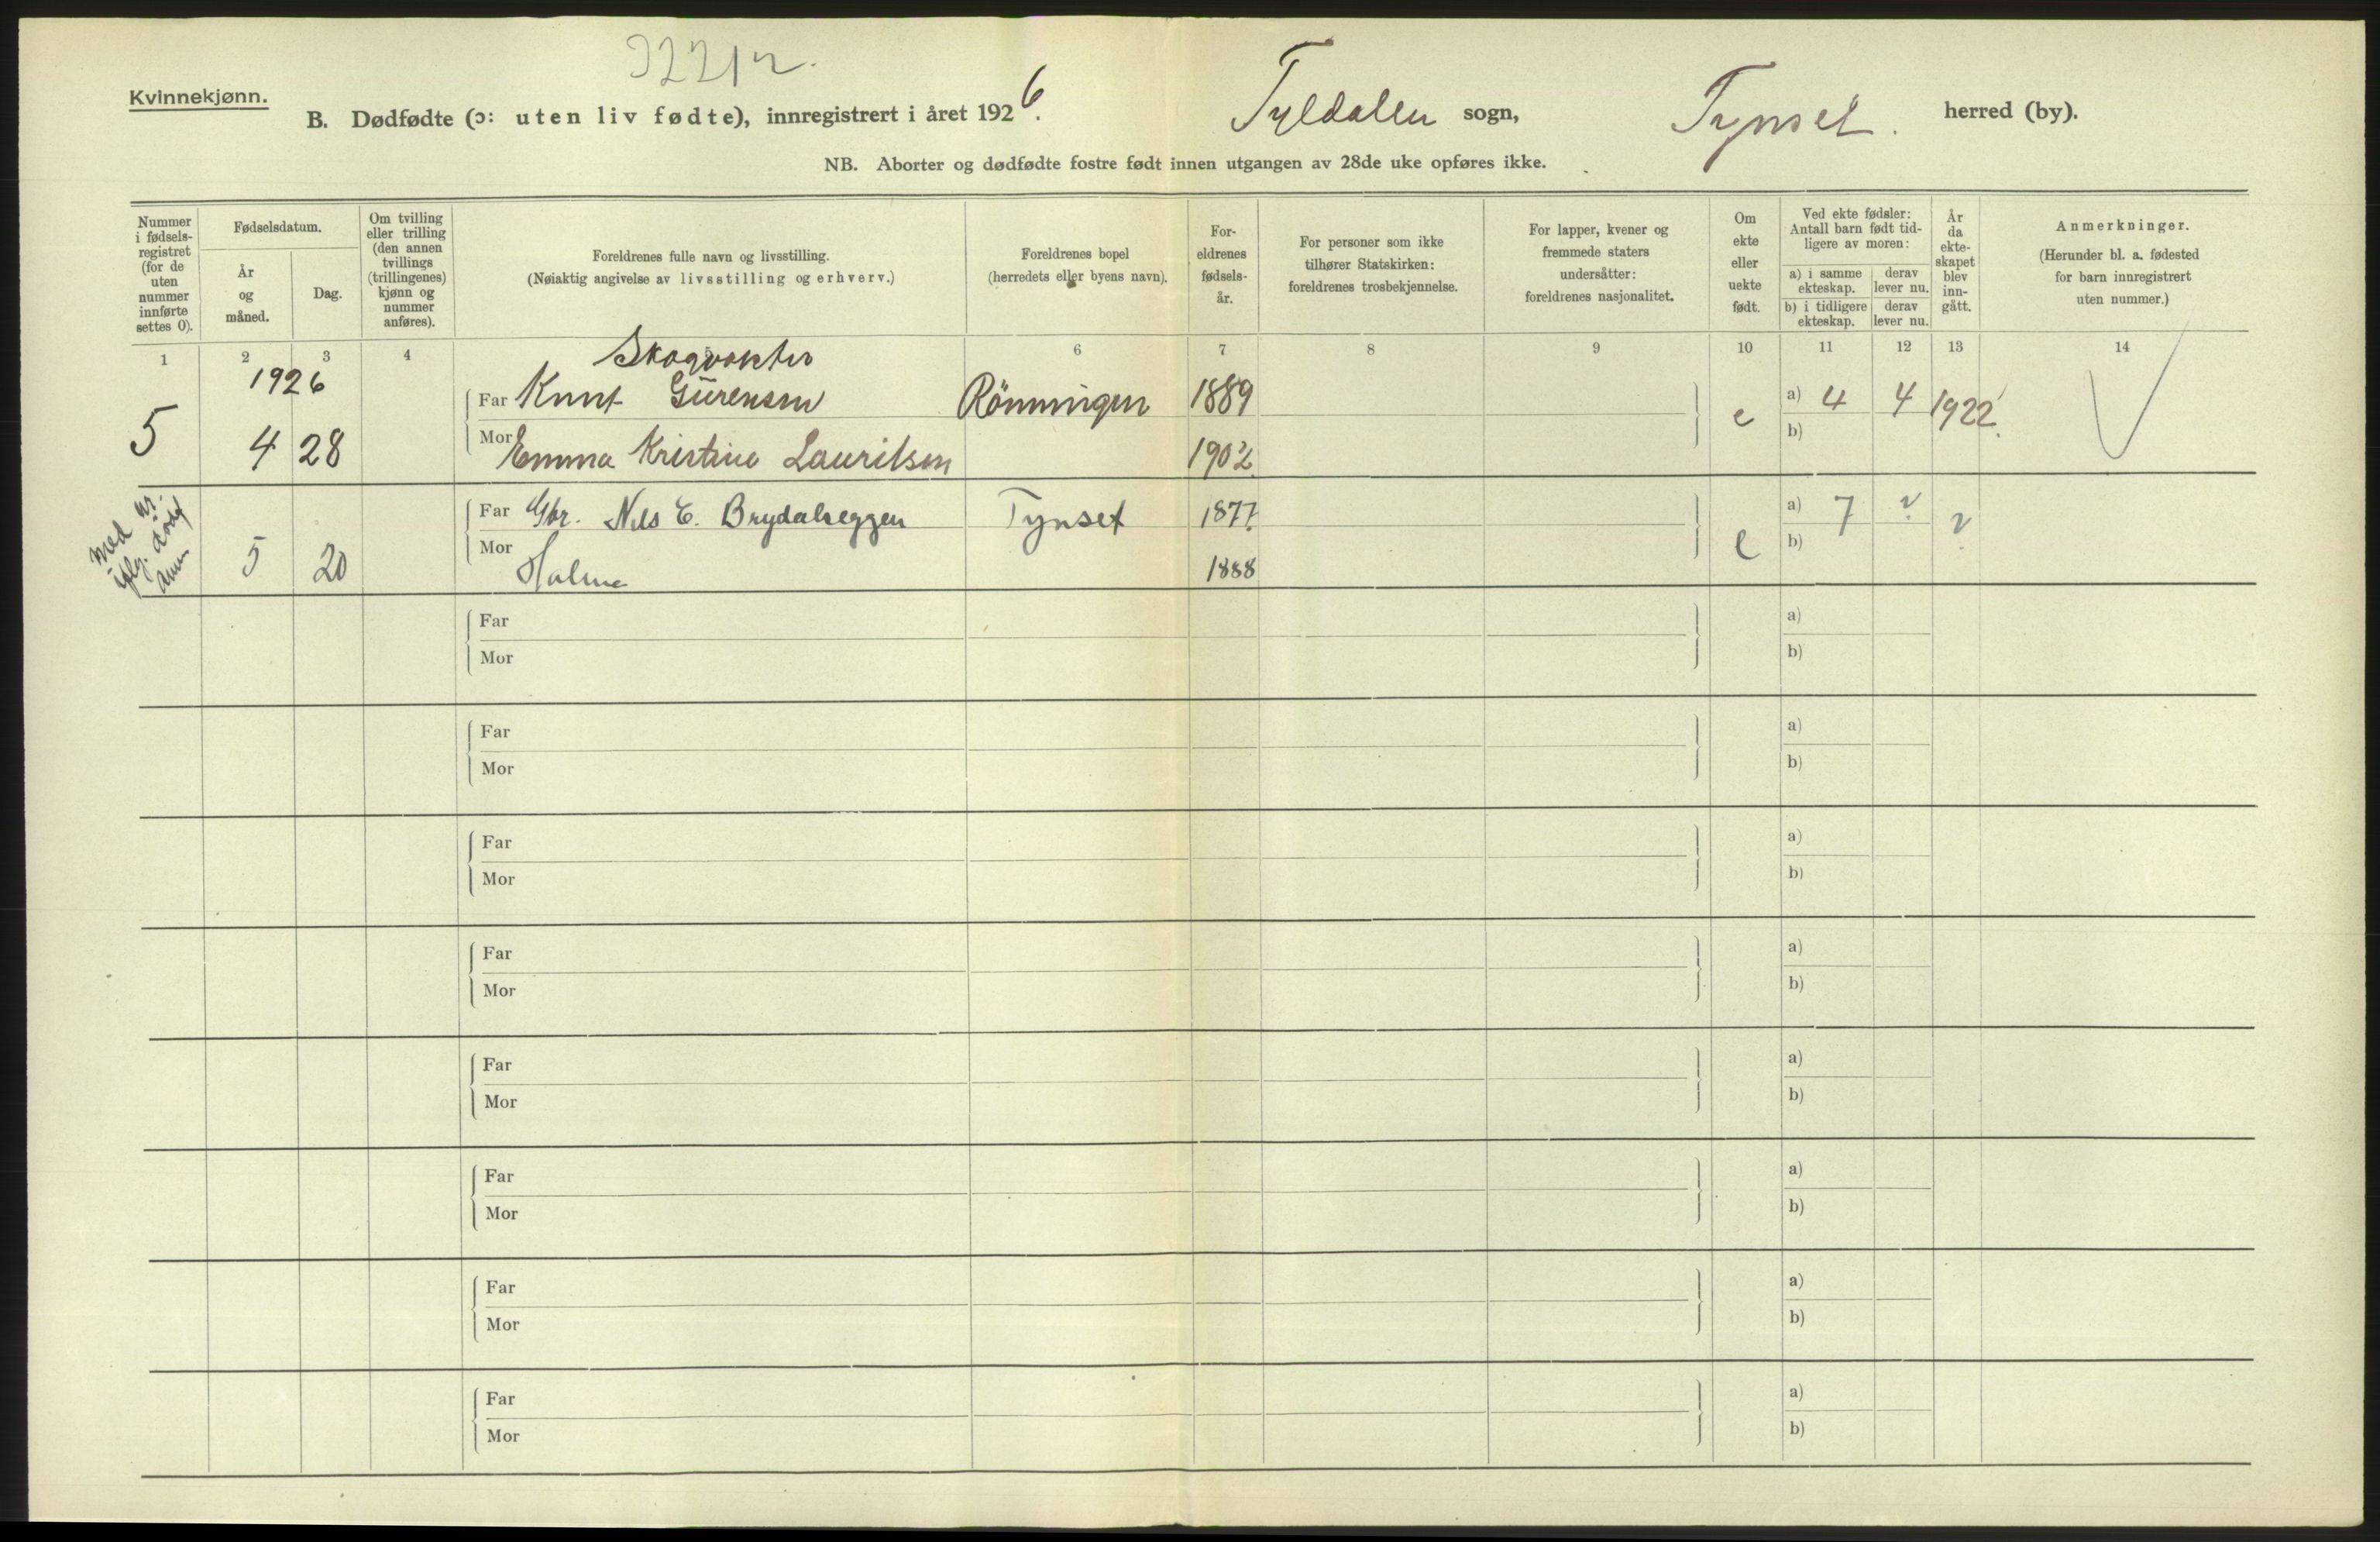 3221 2.
Kvinnekjønn.
B. Dødfødte (ɔ: uten liv fødte), innregistrert i året 1926. Tyldalen sogn, Tynset. herred (by).
NB. Aborter og dødfødte fostre født innen utgangen av 28de uke opføres ikke.
Nummer i fødsels-registret (for de uten nummer innførte settes 0).
Fødselsdatum.
År og måned.
Dag.
Om tvilling eller trilling (den annen tvillings (trillingenes) kjønn og nummer anføres).
Foreldrenes fulle navn og livsstilling.
(Nøiaktig angivelse av livsstilling og erhverv.)
Foreldrenes bopel
(herredets eller byens navn).
For-eldrenes fødsels-år.
For personer som ikke tilhører Statskirken: foreldrenes trosbekjennelse.
For lapper, kvener og fremmede staters undersåtter: foreldrenes nasjonalitet.
Om ekte eller uekte født.
Ved ekte fødsler: Antall barn født tid-ligere av moren:
a) i samme ekteskap. derav lever nu.
b) i tidligere ekteskap. derav lever nu.
År da ekte-skapet blev inn-gått.
Anmerkninger.
(Herunder bl. a. fødested for barn innregistrert uten nummer.)
1 2 3 4 6 7 8 9 10 11 12 13 14
1926 Skogvokter
5 Far Knut Rönningen 1889 e a) 4 4 1922.
4 28 Mor Emma Kristine Lauritsen 1902 b)
med nr.
Far Gbr. Nils E. Brydalseggen Tynset 1877 e a) 7 ? ?
5 20 Mor Halma 1888 b)
Far a)
Mor b)
Far a)
Mor b)
Far a)
Mor b)
Far a)
Mor b)
Far a)
Mor b)
Far a)
Mor b)
Far a)
Mor b)
Far a)
Mor b)